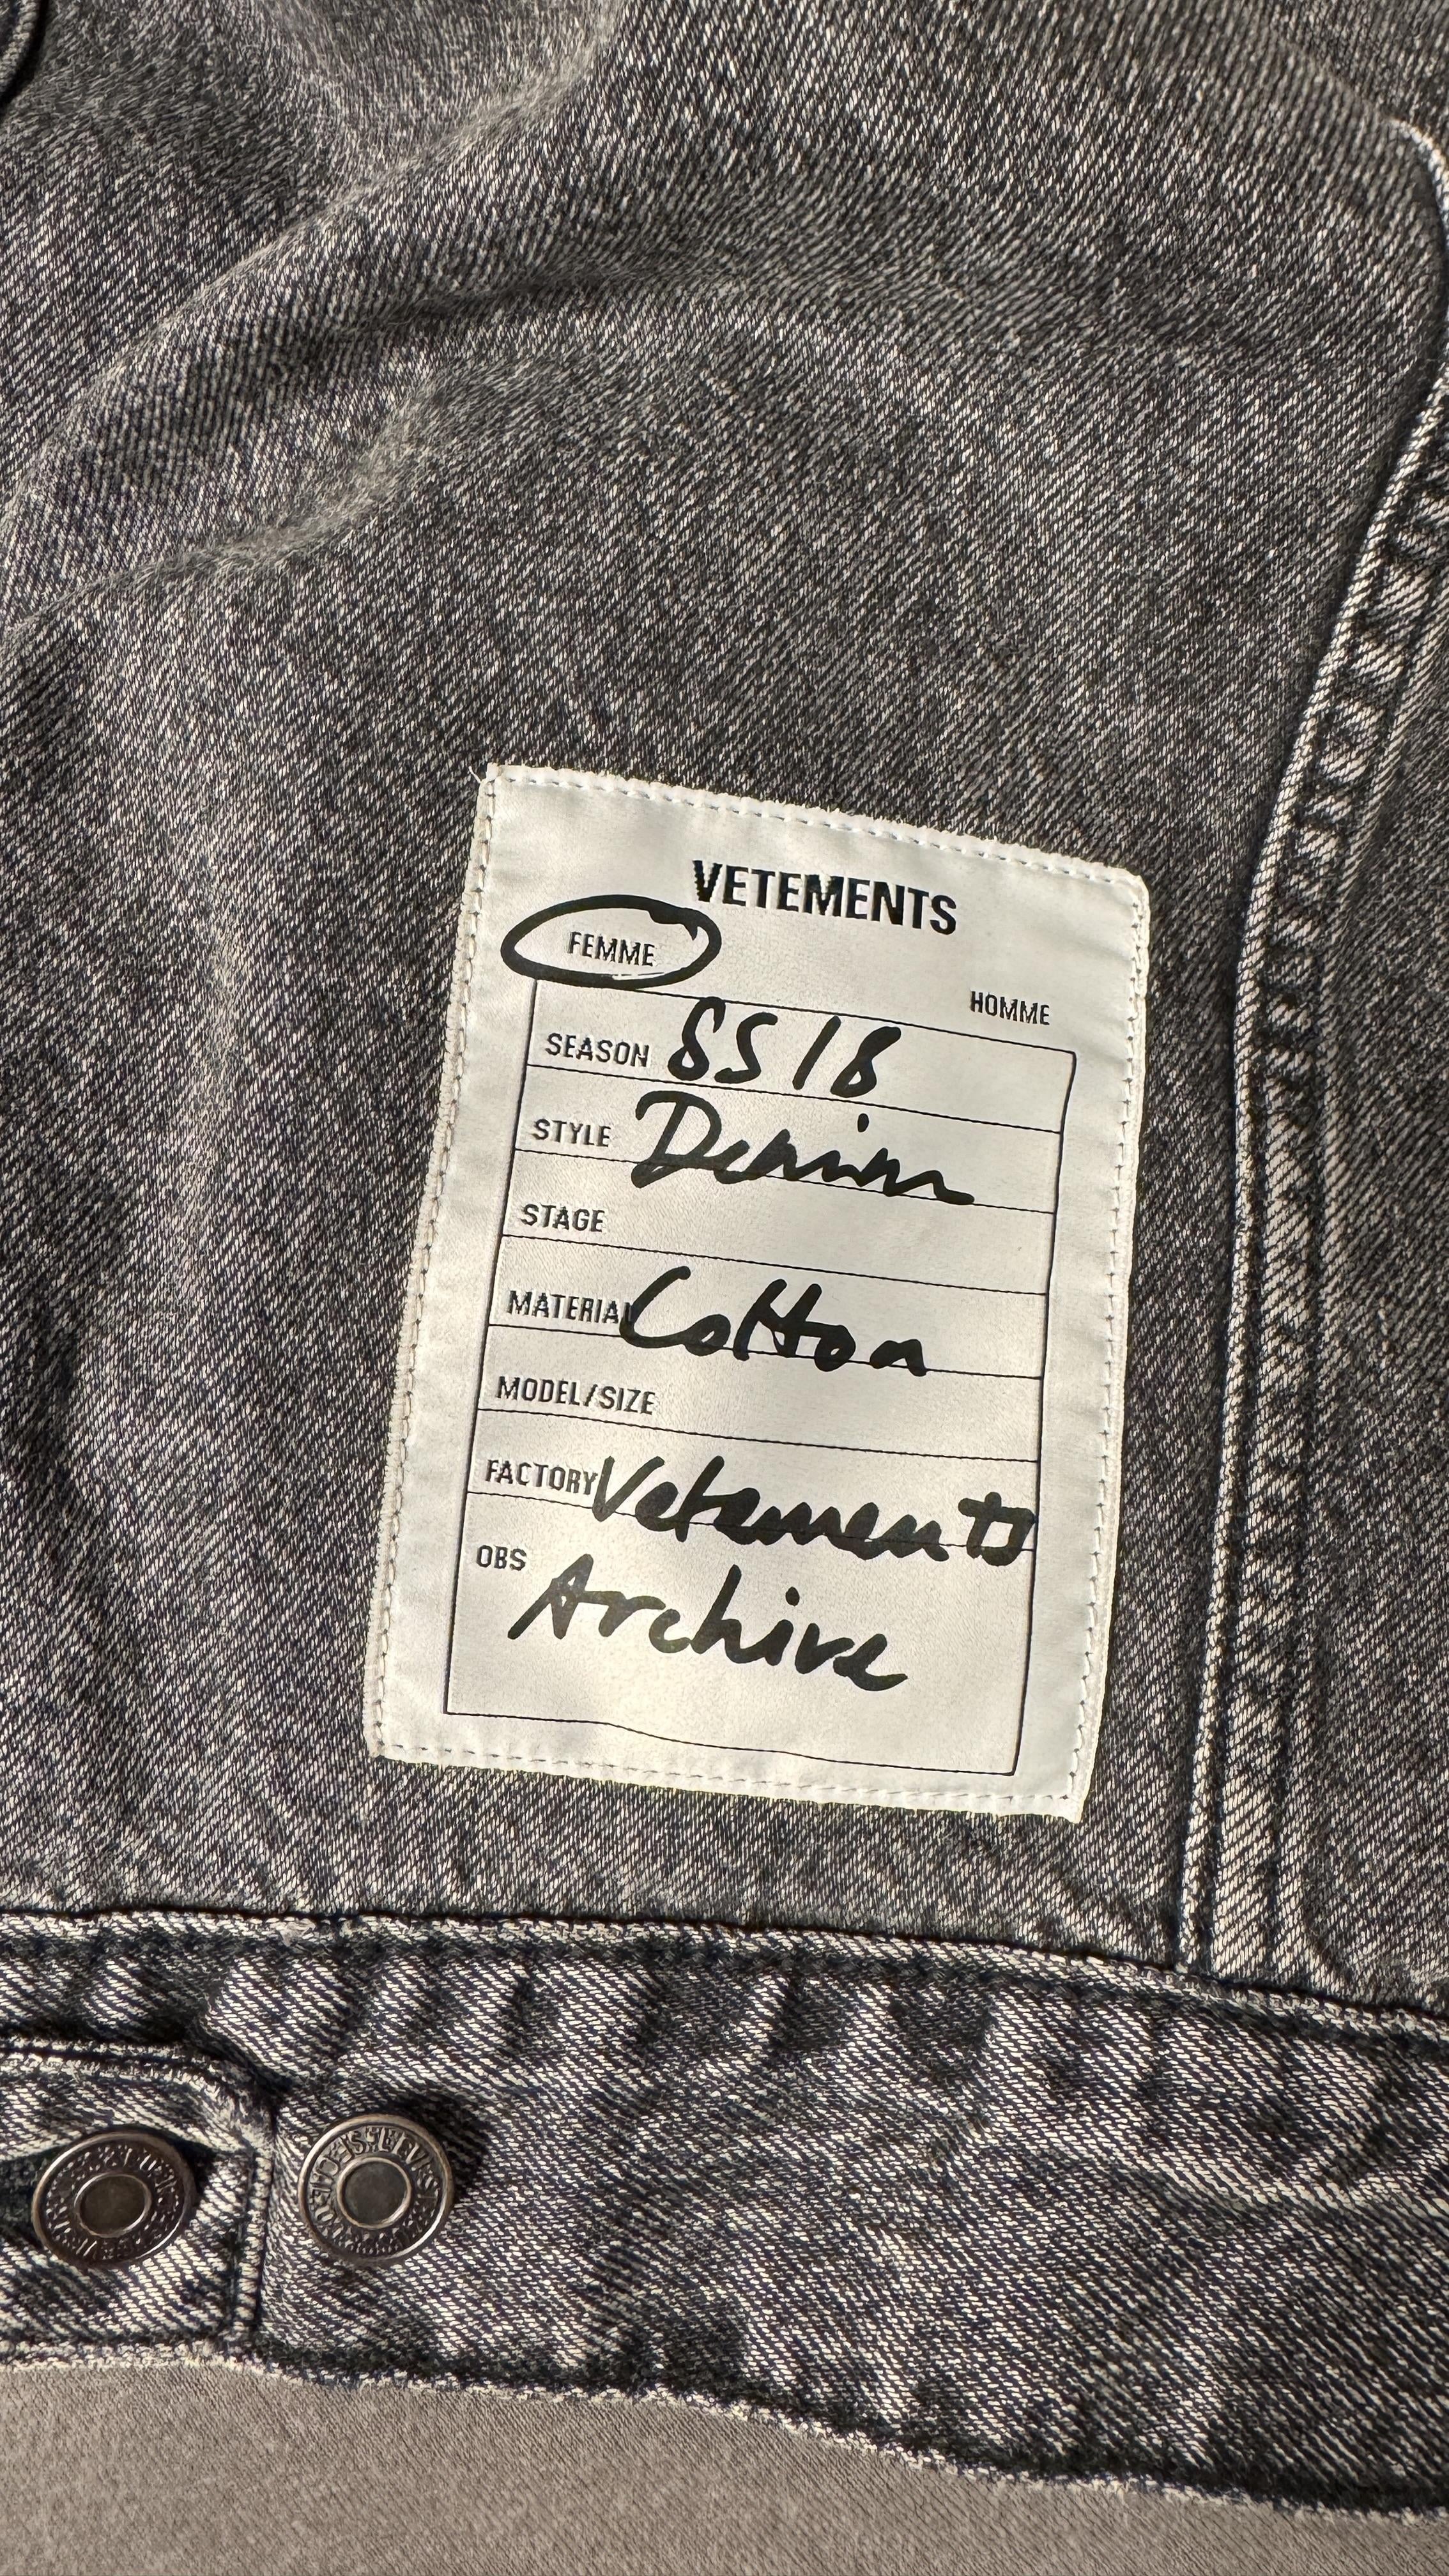 VETEMENTS
FEMME HOMME
SEASON SS18
STYLE Denim
STAGE
MATERIAL Cotton
MODEL/SIZE
FACTORY Vetements
OBS Archive